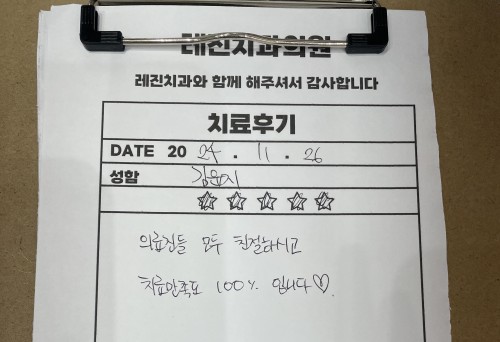 레진치과의원
레진치과와 함께 해주셔서 감사합니다
치료후기
DATE 20 24 . 11 . 26
성함 김윤지
의료진들 모두 친절하시고
치료만족도 100% 입니다♡.